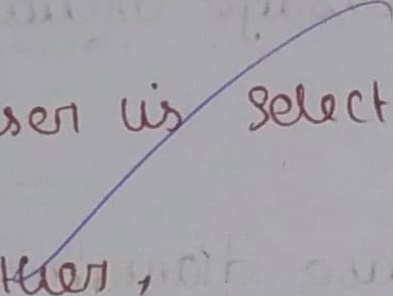 ser is select
ther,